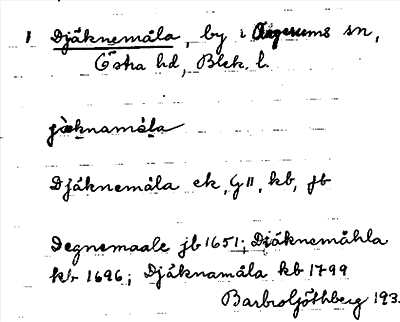 1 Djäknemåla, by i Augerums sn,
Östra hd, Blek. l.
jäknamåla
Djäknemåla ek, GII, kb, jb
Degnemaale jb 1651; Djäknemåhla
kb 1696; Djäknamåla kb 1799
Barbro Göthberg 193